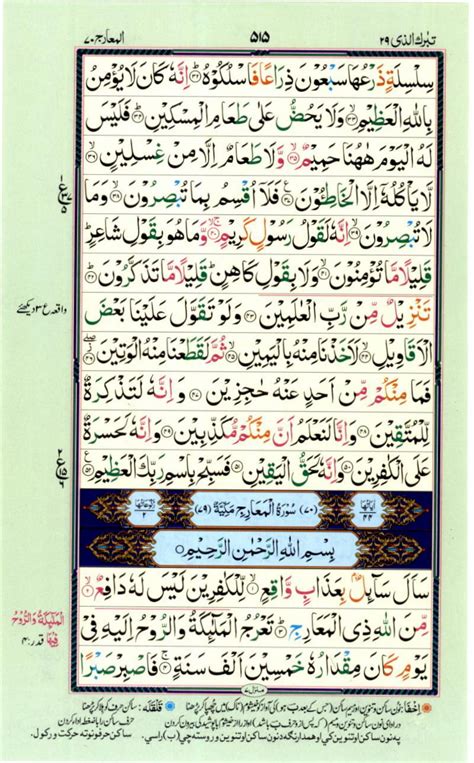 تبٰرک الذی ۲۹
۵۱۵
المعارج ۷۰
سِلْسِلَةٍ ذَرْعُهَا سَبْعُوْنَ ذِرَاعًا فَاسْلُكُوْهُ ۝۳۲ اِنَّهٗ كَانَ لَا يُؤْمِنُ
بِاللّٰهِ الْعَظِيْمِ ۝۳۳ وَلَا يَحُضُّ عَلٰى طَعَامِ الْمِسْكِيْنِ ۝۳۴ فَلَيْسَ
لَهُ الْيَوْمَ هٰهُنَا حَمِيْمٌ ۝۳۵ وَّلَا طَعَامٌ اِلَّا مِنْ غِسْلِيْنٍ ۝۳۶
لَّا يَاْكُلُهٗۤ اِلَّا الْخَاطِـُٔوْنَ ۝۳۷ فَلَاۤ اُقْسِمُ بِمَا تُبْصِرُوْنَ ۝۳۸ وَمَا
لَا تُبْصِرُوْنَ ۝۳۹ اِنَّهٗ لَقَوْلُ رَسُوْلٍ كَرِيْمٍ ۝۴۰ وَّمَا هُوَ بِقَوْلِ شَاعِرٍ
قَلِيْلًا مَّا تُؤْمِنُوْنَ ۝۴۱ وَلَا بِقَوْلِ كَاهِنٍ قَلِيْلًا مَّا تَذَكَّرُوْنَ ۝۴۲
تَنْزِيْلٌ مِّنْ رَّبِّ الْعٰلَمِيْنَ ۝۴۳ وَلَوْ تَقَوَّلَ عَلَيْنَا بَعْضَ
الْاَقَاوِيْلِ ۝۴۴ لَاَخَذْنَا مِنْهُ بِالْيَمِيْنِ ۝۴۵ ثُمَّ لَقَطَعْنَا مِنْهُ الْوَتِيْنَ ۝۴۶
فَمَا مِنْكُمْ مِّنْ اَحَدٍ عَنْهُ حٰجِزِيْنَ ۝۴۷ وَاِنَّهٗ لَتَذْكِرَةٌ
لِّلْمُتَّقِيْنَ ۝۴۸ وَاِنَّا لَنَعْلَمُ اَنَّ مِنْكُمْ مُّكَذِّبِيْنَ ۝۴۹ وَاِنَّهٗ لَحَسْرَةٌ
عَلَى الْكٰفِرِيْنَ ۝۵۰ وَاِنَّهٗ لَحَقُّ الْيَقِيْنِ ۝۵۱ فَسَبِّحْ بِاسْمِ رَبِّكَ الْعَظِيْمِ ۝۵۲
اٰیاتها ۴۴
(۷۰) سُوْرَةُ الْمَعَارِجِ مَكِّيَّةٌ (۷۹)
رکوعاتها ۲
بِسْمِ اللّٰهِ الرَّحْمٰنِ الرَّحِيْمِ
سَاَلَ سَآئِلٌۢ بِعَذَابٍ وَّاقِعٍ ۝۱ لِّلْكٰفِرِيْنَ لَيْسَ لَهٗ دَافِعٌ ۝۲
مِّنَ اللّٰهِ ذِي الْمَعَارِجِ ۝۳ تَعْرُجُ الْمَلٰٓئِكَةُ وَالرُّوْحُ اِلَيْهِ فِيْ
يَوْمٍ كَانَ مِقْدَارُهٗ خَمْسِيْنَ اَلْفَ سَنَةٍ ۝۴ فَاصْبِرْ صَبْرًا
واقعہ ع ۳ دیکھئے
الْمَلٰٓئِكَةُ وَالرُّوْحُ
فِيْهَا قدر: ۴